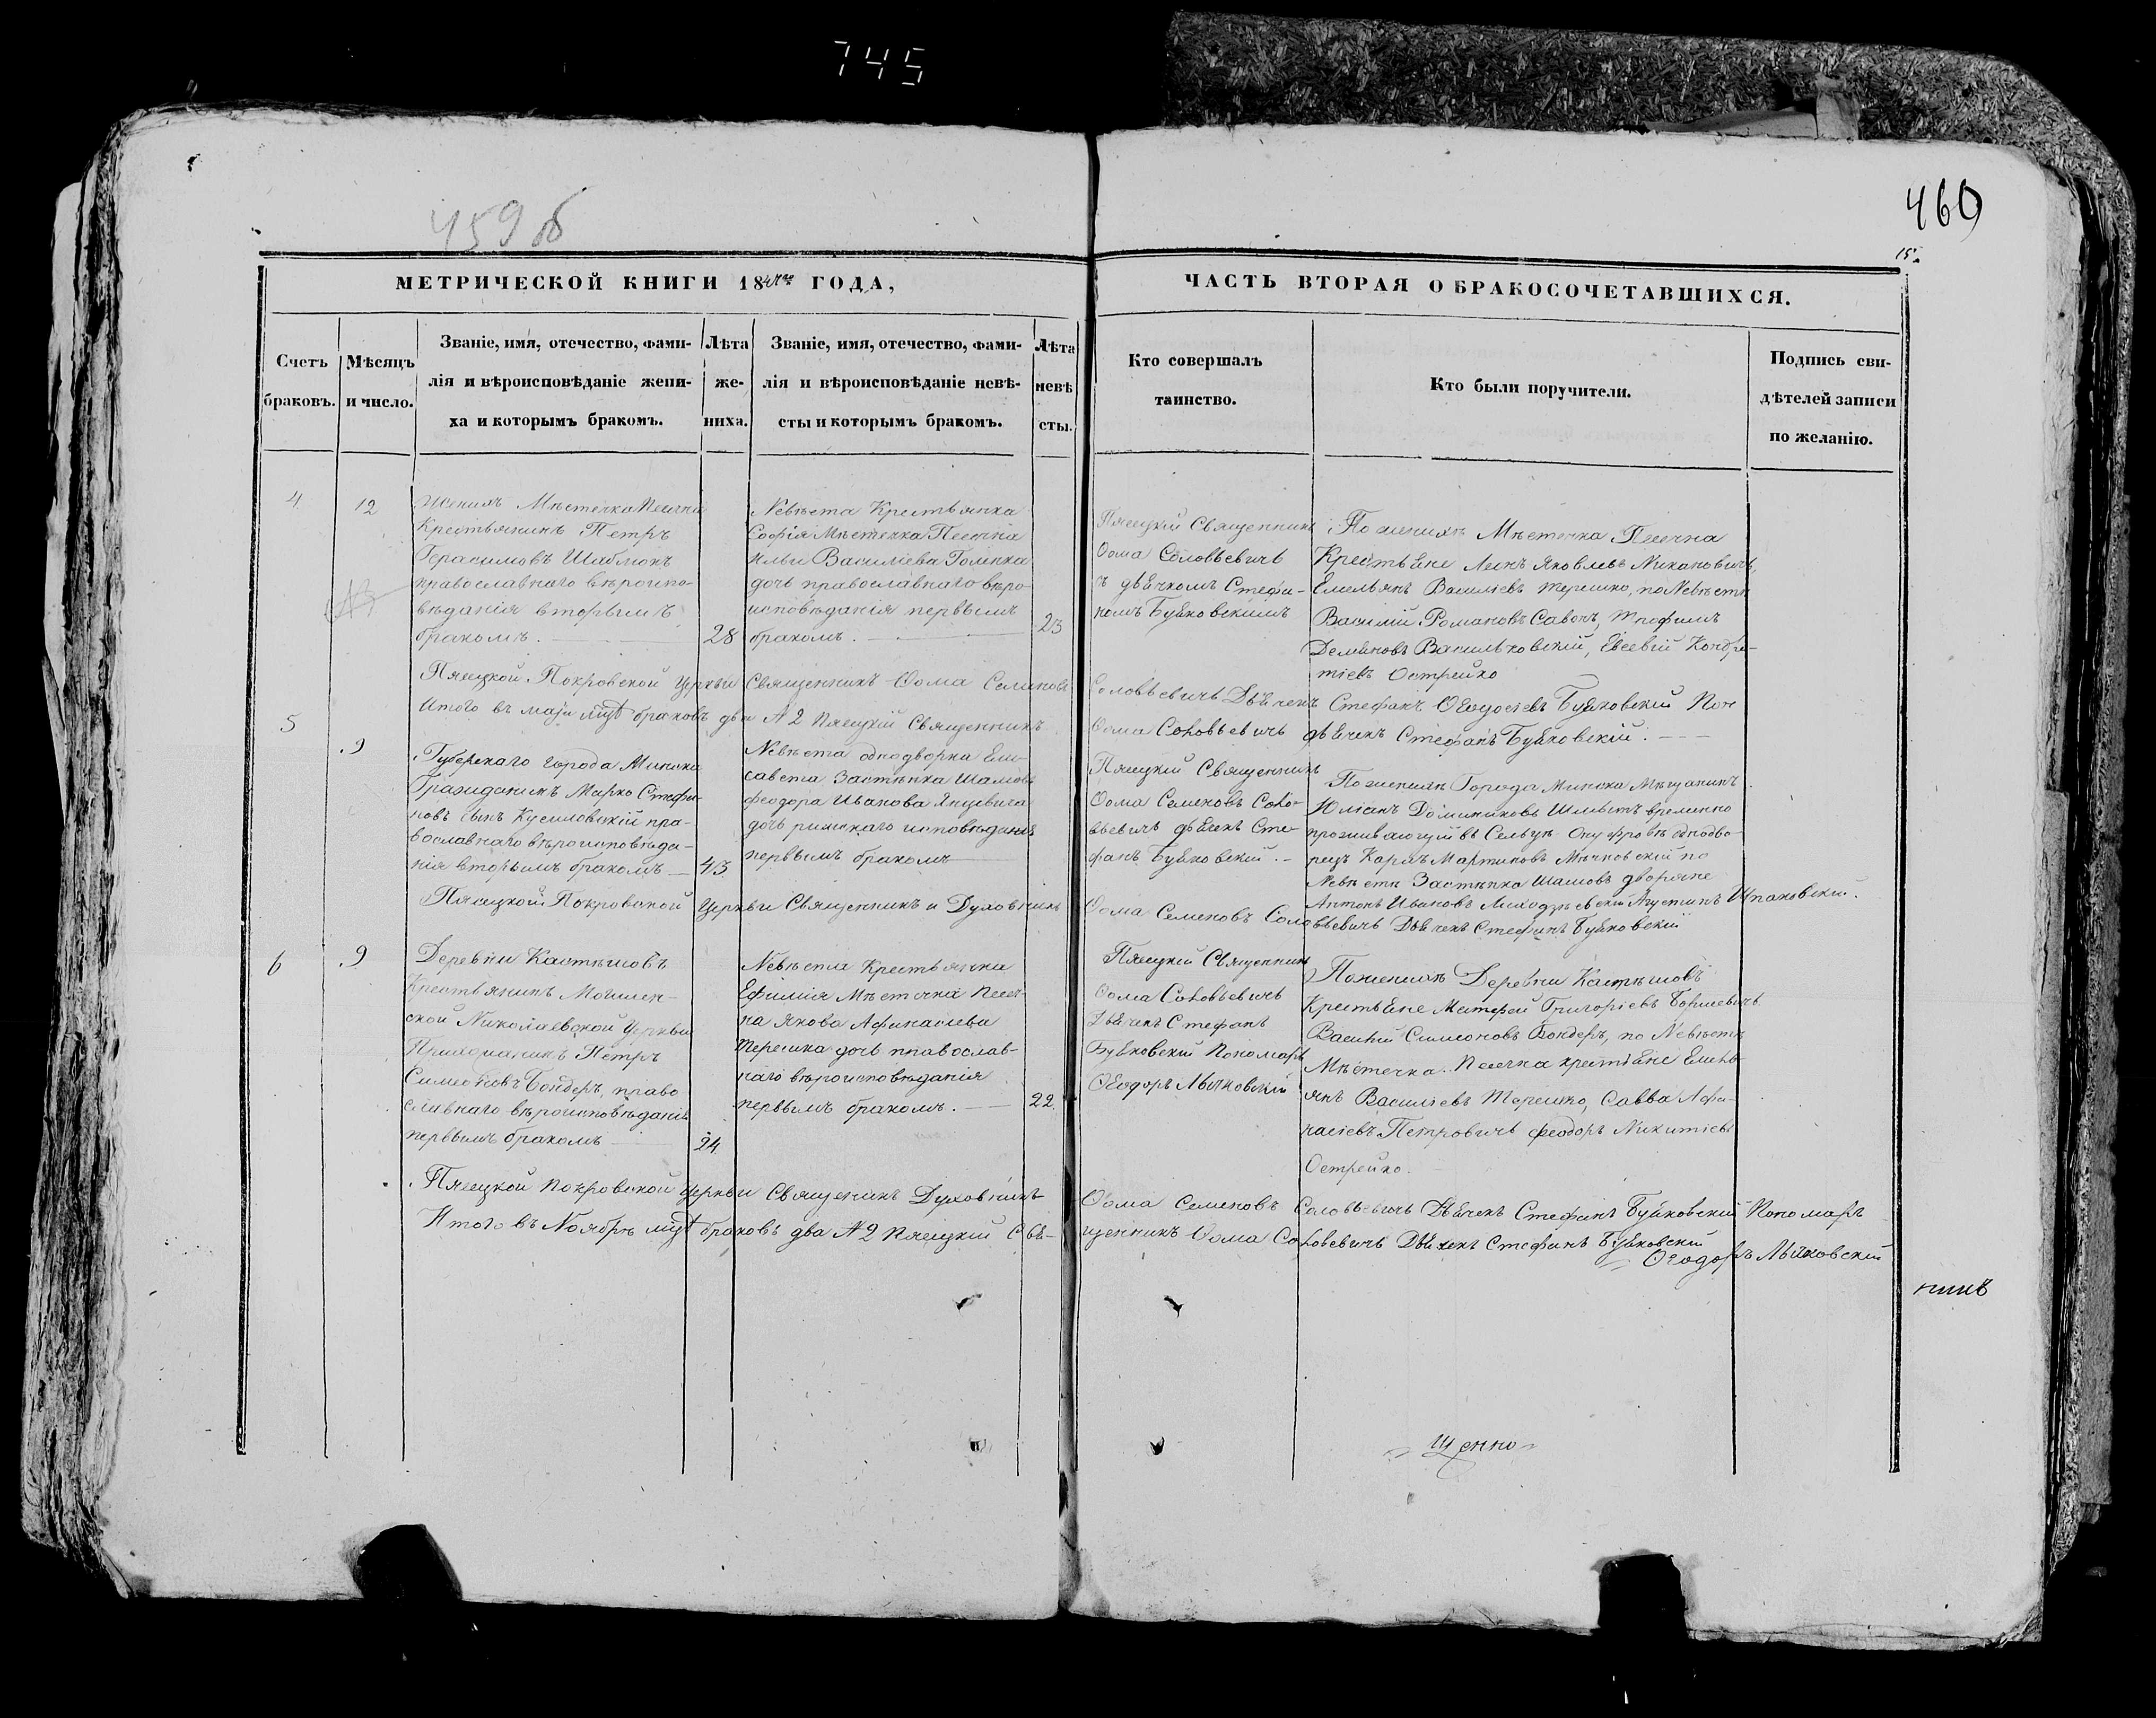 745
459 об
460
15.
МЕТРИЧЕСКОЙ КНИГИ 18 ГОДА,
ЧАСТЬ ВТОРАЯ О БРАКОСОЧЕТАВШИХСЯ.
Счетъ
браковъ.
Мѣсяцъ
и число.
Званіе, имя, отечество, фами-
лія и вѣроисповѣданіе жени-
ха и которымъ бракомъ.
Лѣта
же-
ниха.
Званіе, имя, отечество, фами-
лія и вѣроисповѣданіе невѣ-
сты и которымъ бракомъ.
Лѣта
невѣ
сты.
Кто совершалъ
таинство.
Кто были поручители.
Подпись сви-
дѣтелей записи
по желанію.
4
12
Женихъ Мѣстечка Песечна
Крестьянинъ Петръ
Герасимовъ Шаблюкъ
православнаго вѣроиспо-
вѣданія вторымъ
бракомъ.
28
Невѣста Крестьянка
Софія Мѣстечка Песечна
Ильи Василіева Голенка
дочь православнаго вѣро-
исповѣданія первымъ
бракомъ.
23
Пясецкій Священникъ
Ѳома Соловьевичъ
съ дьячкомъ Стефа-
номъ Буйковскимъ
По женихѣ Мѣстечка Песечна
Крестьяне Леонъ Яковлевъ Никановичъ,
Емельянъ Василіевъ Терешко, по Невѣстѣ
Василій Романовъ Савонъ, Трофимъ
Деміановъ Васильковскій, Евсевій Кондра-
тіевъ Острейко
Пясецкой Покровской Церкви Священникъ Ѳома Семеновъ Соловьевичъ Дьячекъ Стефанъ Ѳеодосіевъ Буйковскій Пон
Итого въ маіи мцѣ браковъ два № 2 Пясецкій Священникъ Ѳома Соловьевичъ дьячекъ Стефанъ Буйковскій.
5
9
Губернаго города Минска
Гражданинъ Марко Стефа-
новъ сынъ Кусиловскій пра-
вославнаго вѣроисповѣда-
нія вторымъ бракомъ
43
Невѣста однодворка Ели-
савета Застѣнка Шамовъ
Феодора Иванова Янцевича
дочь римскаго исповѣданія
первымъ бракомъ
Пясецкій Священникъ
Ѳома Семеновъ Соло-
вьевичъ дьячекъ Сте-
фанъ Буйковскій.
По женихѣ Города Минска Мѣщанинъ
Юліанъ Доминиковъ временно
проживающій въ Сельцѣ Онуфровѣ однодво-
рецъ Карлъ Мартиновъ Мычковскій по
Невѣстѣ Застѣнка Шамовъ дворяне
Антонъ Ивановъ Августинъ Шпаковскій.
Пясецкой Покровской Церкви Священникъ и Духовникъ Ѳома Семеновъ Соловьевичъ Дьячекъ Стефанъ Буйковскій
6
9
Деревни Кастѣшовъ
Крестьянинъ Могилен-
ской Николаевской Церкви
Прихожанинъ Петръ
Симеоновъ Бондеръ, право
славнаго вѣроисповѣданія
первымъ бракомъ
24
Невѣста Крестьянка
Ефимія Мѣстечка Песеч-
на Якова Афанасіева
Терешка дочь православ-
наго вѣроисповѣданія
первымъ бракомъ.
22
Пясецкій Священникъ
Ѳома Соловьевичъ
Дьячекъ Стефанъ
Буйковскій Пономарь
Ѳеодоръ Лычковскій
По женихѣ Деревни Кастѣшовъ
Крестьяне Матфей Григоріевъ
Василій Симеоновъ Бондеръ, по Невѣстѣ
Мѣстечка Песечна крестьяне Емель
янъ Василіевъ Терешко, Савва Афа-
насіевъ Петровичъ Феодоръ Никитіевъ
Острейко.
Пясецкой Покровской церкви Священникъ Духовникъ Ѳома Семеновъ Соловьевичъ Дьячекъ Стефанъ Буйковскій Пономарь
Итого въ Ноябрѣ мцѣ браковъ два № 2 Пясецкій Свя-щенникъ Ѳома Соловьевичъ Дьячекъ Стефанъ Буйковскій
Ѳеодоръ Лычковскій
щенно
никъ